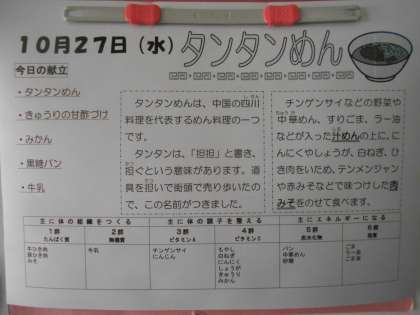 10月27日（水）タンタンめん
今日の献立
・タンタンめん
・きゅうりの甘酢づけ
・みかん
・黒糖パン
・牛乳
タンタンめんは、中国の四川
料理を代表するめん料理の一つ
です。
タンタンは、「担担」と書き、
担ぐという意味があります。道
具を担いで街頭で売り歩いたの
で、この名前がつきました。
チンゲンサイなどの野菜や
中華めん、すりごま、ラー油
などが入った汁めんの上に、に
んにくやしょうが、白ねぎ、ひ
き肉をいため、テンメンジャン
や赤みそなどで味つけした肉
みそをのせて食べます。
主に体の組織をつくる 主に体の調子を整える 主にエネルギーになる
1群 2群 3群 4群 5群 6群
たんぱく質 無機質 ビタミンA ビタミンC 炭水化物 脂質
牛ひき肉 牛乳 チンゲンサイ もやし パン ごま
豚ひき肉 にんじん 白ねぎ 中華めん ラー油
みそ にんにく 砂糖 ごま油
しょうが
きゅうり
みかん